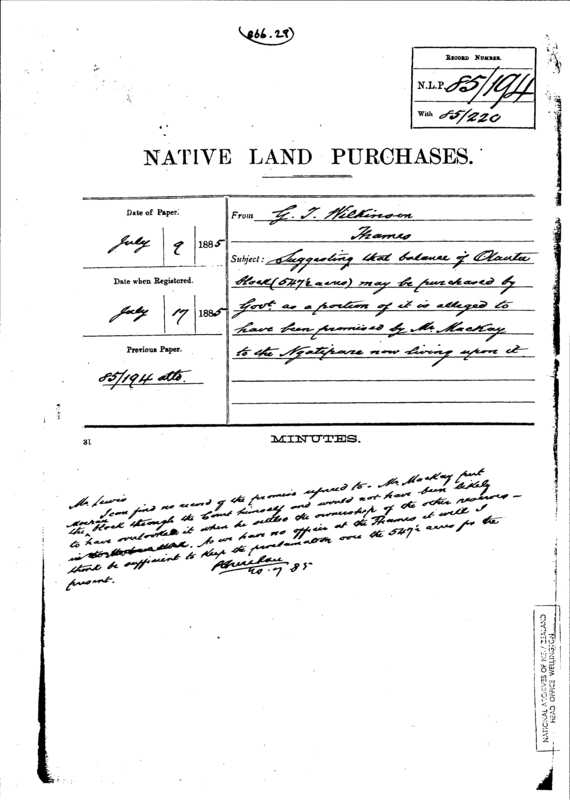 (866.28)
RECORD NUMBER.
N.L.P. 85/194
With 85/220
NATIVE LAND PURCHASES.
Date of Paper.
July 9 1885
Date when Registered.
July 17 1885
Previous Paper.
85/194 atto.
From G. T. Wilkinson
Thames
Subject: Suggesting that balance of
block (547½ acres) may be purchased by
Govt. as a portion of it is alleged to
have been promised by Mr. MacKay
to the Ngatipare now living upon it
31
MINUTES.
Mr Lewis
I can find no record of the promise referred to. Mr. MacKay put
this block through the Court himself and would not have been likely
to have overlooked it when he settled the ownership of the other reserves –
in. As we have no officer at the Thames it will I
think be sufficient to keep the proclamation over the 547½ acres for the
present.
20.7.85
NATIONAL ARCHIVES OF NEW ZEALAND
HEAD OFFICE WELLINGTON